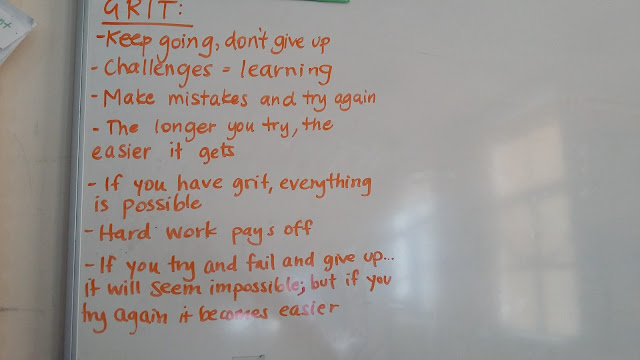 GRIT:
-Keep going, don't give up
- Challenges = learning
- Make mistakes and try again
- The longer you try, the
easier it gets
- If you have grit, everything
is possible
- Hard work pays off
- If you try and fail and give up...
it will seem impossible; but if you
try again it becomes easier